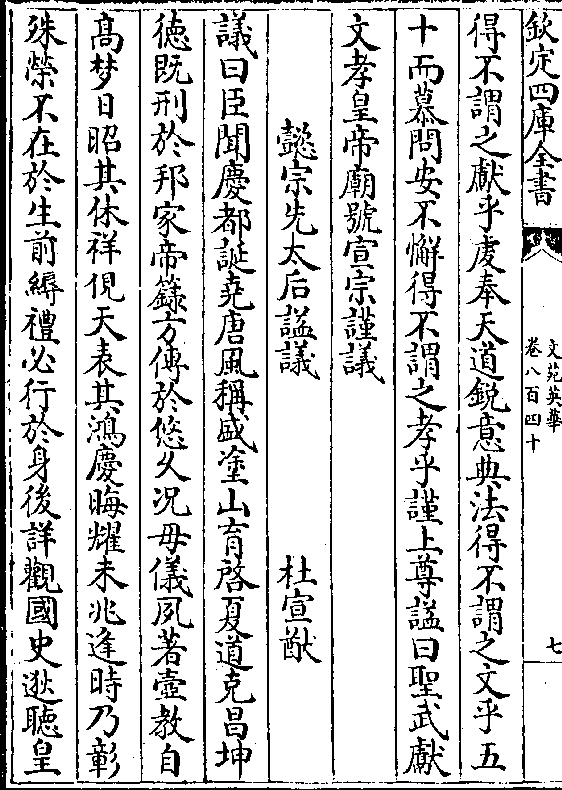 欽定四庫全書
文苑英華
卷八百四十
七
得不謂之獻乎虔奉天道鋭意典法得不謂之文乎五
十而慕問安不懈得不謂之孝乎謹上尊諡曰聖武獻
文孝皇帝廟號宣宗謹議
懿宗先太后諡議
杜宣猷
議曰臣聞慶都誕堯唐風稱盛塗山育啓夏道克昌坤
徳既刑於邦家帝籙方傳於悠久况母儀夙著壼教自
髙梦日昭其休祥俔天表其鴻慶晦耀未兆逢時乃彰
殊榮不在於生前縟禮必行於身後詳觀國史逖聽皇